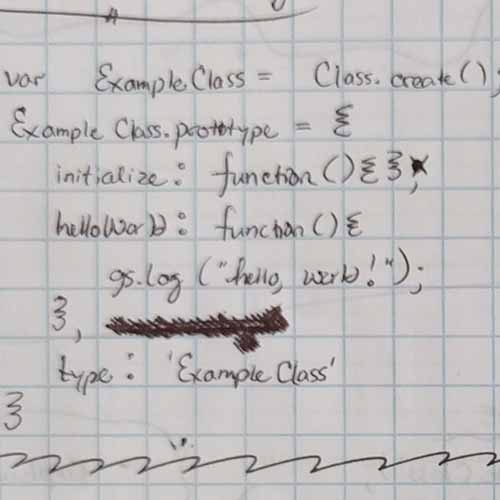 var ExampleClass = Class.create();
ExampleClass.prototype = {
initialize: function(){ },
helloWorld: function(){
gs.log("hello, world!");
},
type: 'ExampleClass'
}